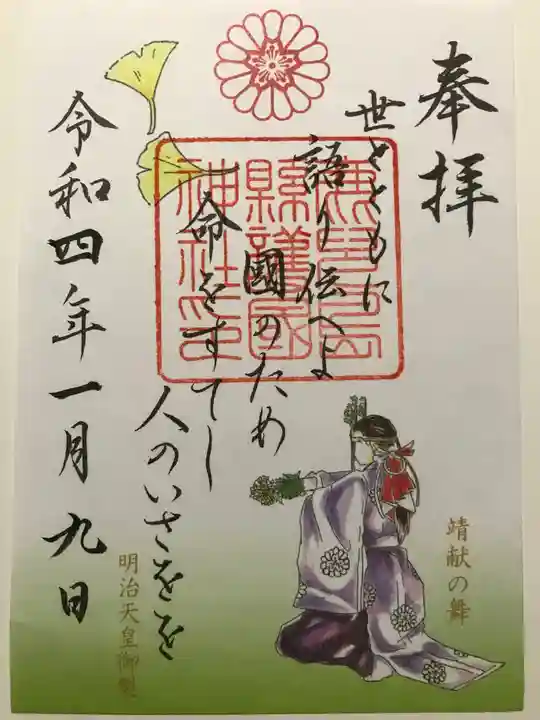 奉拝
世とともに
語り伝へよ
國のため
命をすてし
人のいさをを
明治天皇御製
令和四年一月九日
靖献の舞
鹿児島
縣護國
神社印